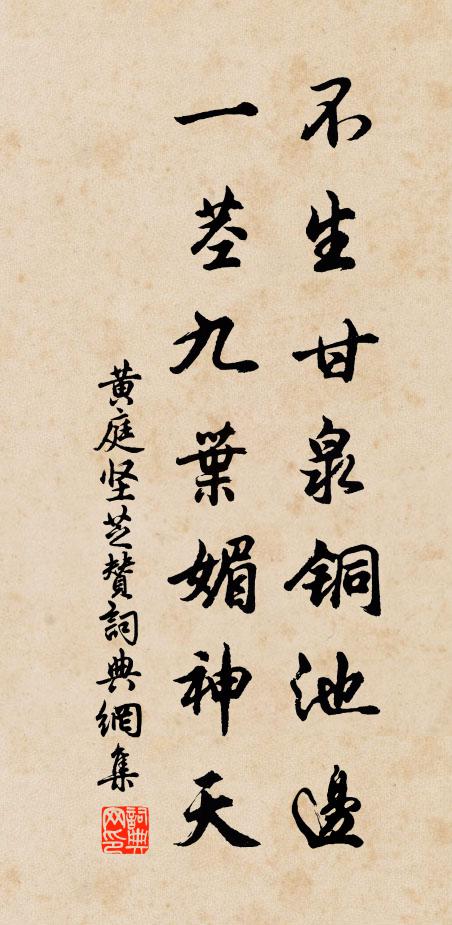 不生甘泉銅池邊
一茎九葉媚神天
黄庭坚芝贊詞典網集
詞典网印